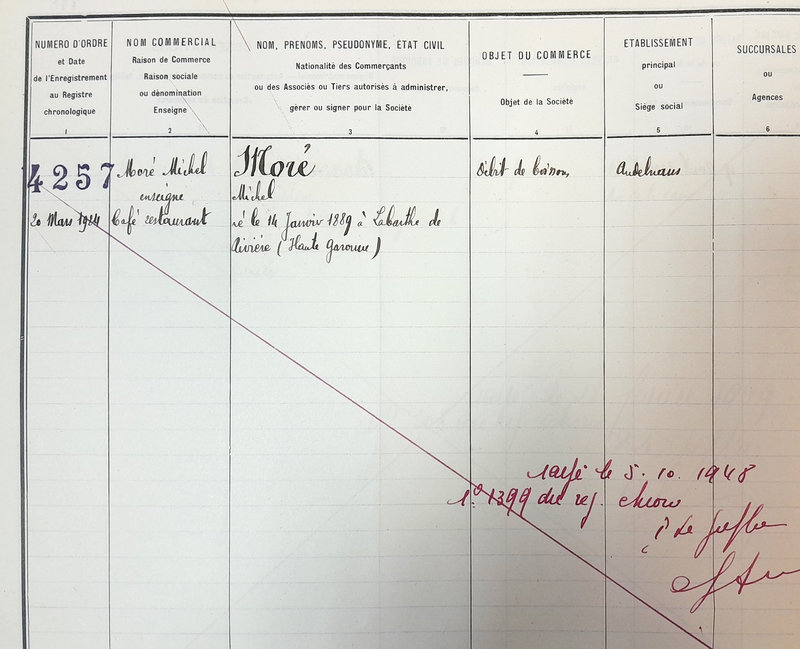 NUMERO D'ORDRE
et Date
de l'Enregistrement
au Registre
chronologique
1
NOM COMMERCIAL
Raison de Commerce
Raison sociale
ou dénomination
Enseigne
2
NOM, PRENOMS, PSEUDONYME, ÉTAT CIVIL
Nationalité des Commerçants
ou des Associés ou Tiers autorisés à administrer,
gérer ou signer pour la Société
3
OBJET DU COMMERCE
Objet de la Société
4
ETABLISSEMENT
principal
ou
Siège social
5
SUCCURSALES
ou
Agences
6
4257
20 Mars
Moré Michel
enseigne
Café restaurant
Moré
Michel
né le 14 Janvier 1889 à Labarthe de
Rivière (Haute Garonne)
Débit de boissons
rayé le 5.10.1948
1399 du reg. chron
Le Greffier